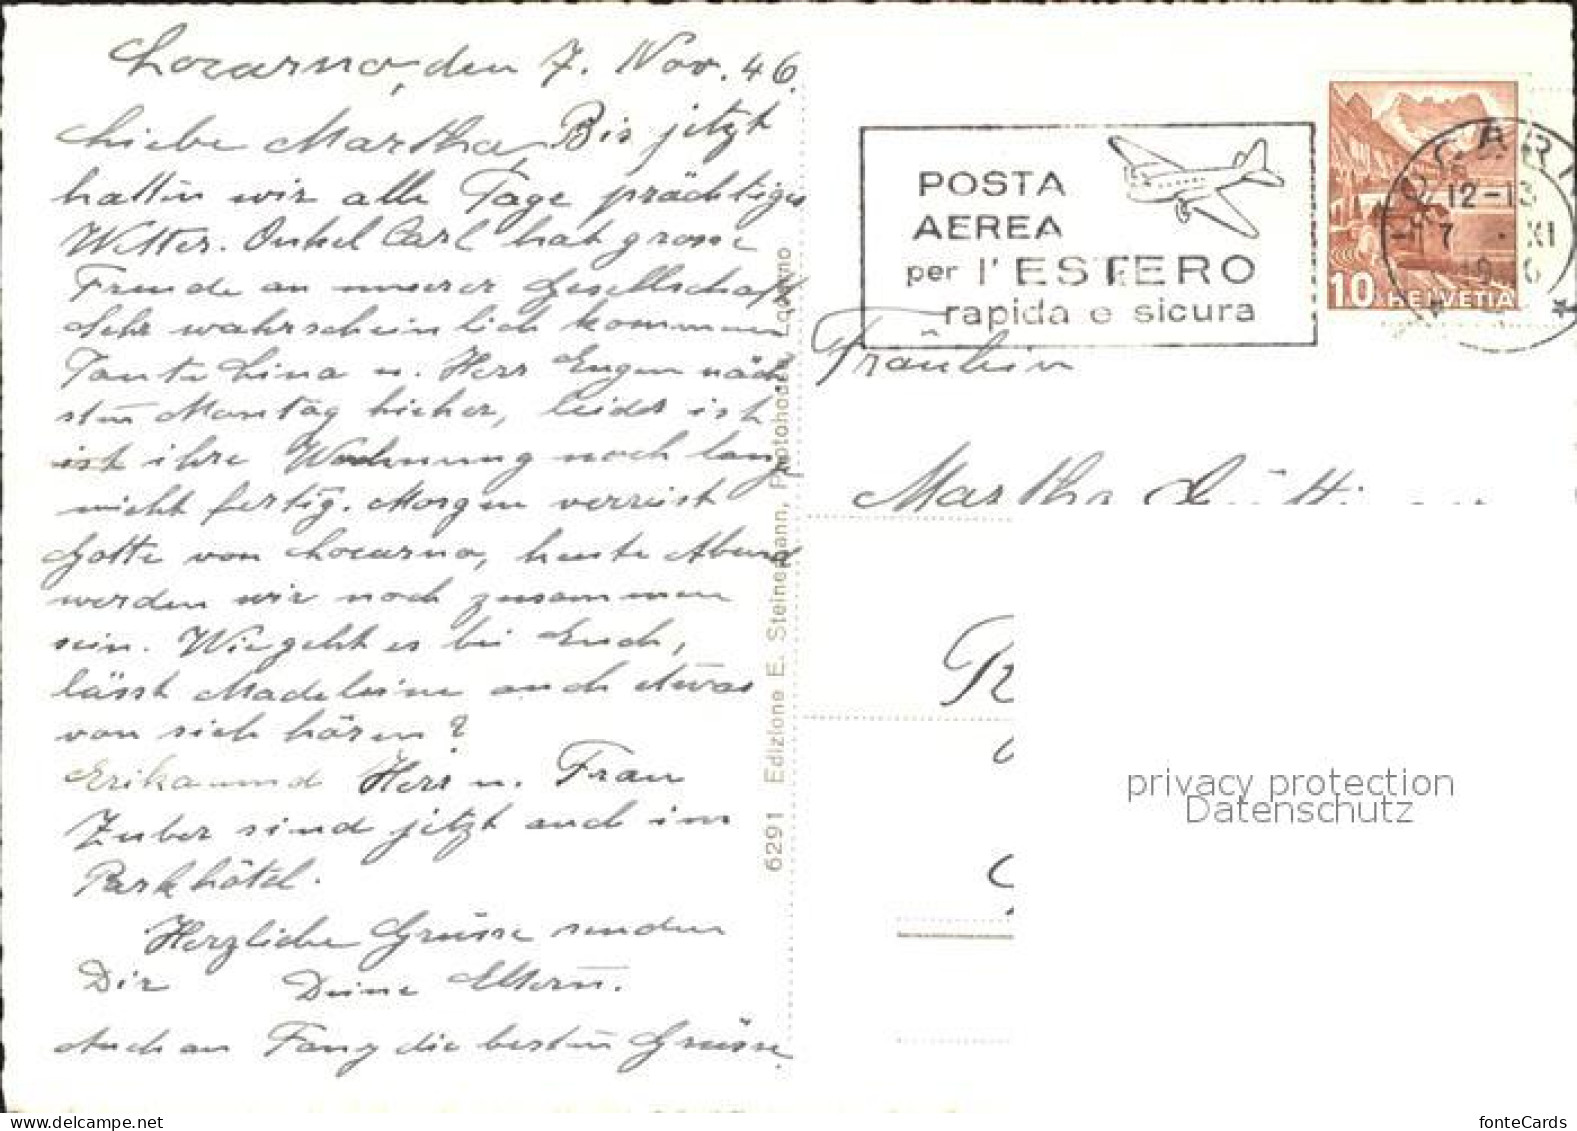 Locarno, den 7. Nov. 46.
Liebe Martha, Bis jetzt
hatten wir alle Tage prächtiges
Wetter. Onkel Carl hat grosse
Freude an unserer Gesellschaft
Sehr wahrscheinlich kommen
Tante Lina u. Herr Eugen näch
sten Montag hieher, leider ist
ist ihre Wohnung noch lang
nicht fertig. Morgen verreist
Gotte von Locarno, heute Abend
werden wir noch zusammen
sein. Wie geht es bei Euch,
lässt Madeleine auch etwas
von sich hören?
Erika und Herr u. Frau
Zuber sind jetzt auch im
Parkhôtel.
Herzliche Grüsse senden
Dir Deine Eltern.
Auch an Fanz die besten Grüsse
6291 Edizione E. Steinemann, Photohodel, Locarno
POSTA
AEREA
per l'ESTERO
rapida e sicura
LOCARN
12-13
7 · XI
10 HELVETIA
Fräulein
Martha
privacy protection
Datenschutz
fonteCards